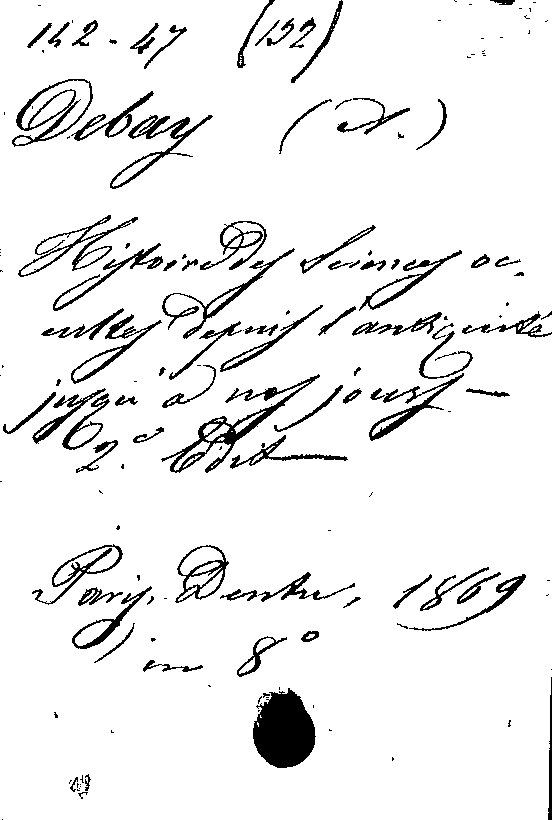 142-47 (132)
Debay (A.)
Histoire des Sciences oc-
cultes depuis l'antiquité
jusqu'à nos jours —
2.ª Edit —
Paris, Dentu, 1869
in 8º